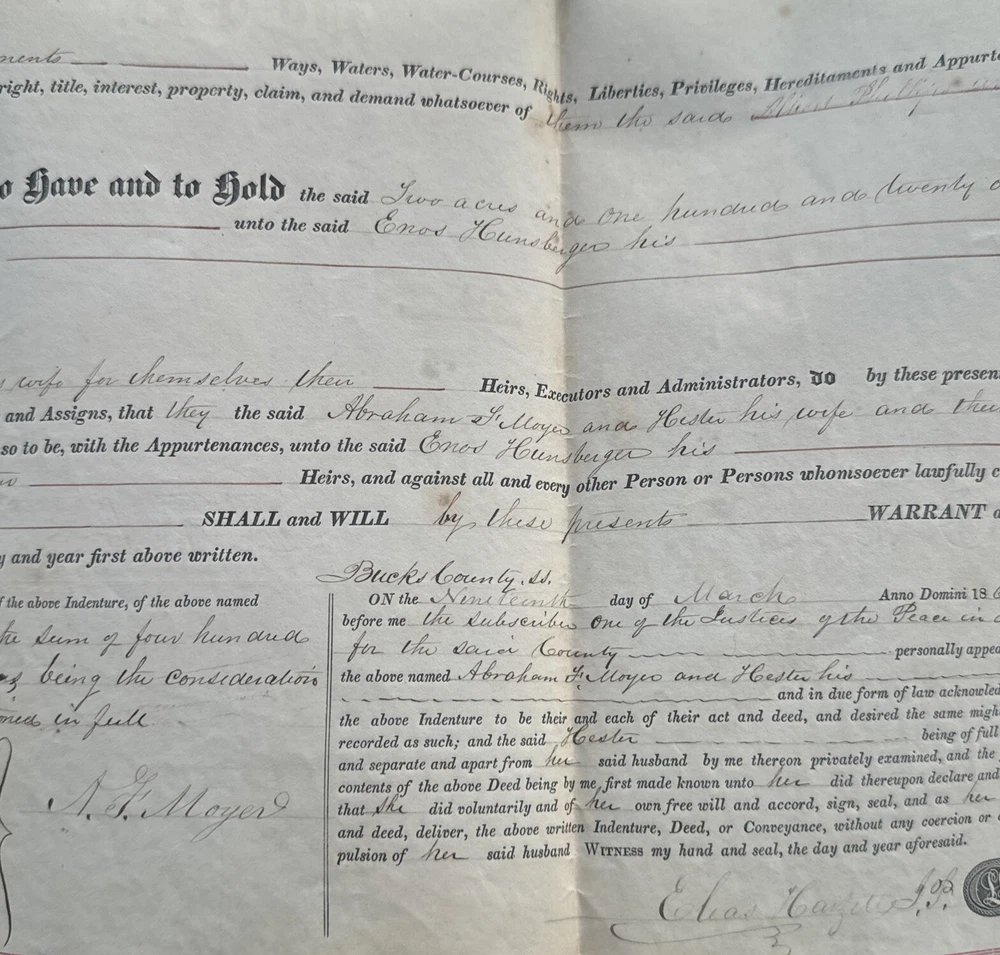 ments Ways, Waters, Water-Courses, Rights, Liberties, Privileges, Hereditaments and Appurte
right, title, interest, property, claim, and demand whatsoever of them the said
o Have and to Hold the said Two acres and one hundred and twenty
unto the said Enos Hunsberger his
wife for themselves their Heirs, Executors and Administrators, DO by these presen
and Assigns, that they the said Abraham F. Moyer and Hester his wife and thei
so to be, with the Appurtenances, unto the said Enos Hunsberger his
Heirs, and against all and every other Person or Persons whomsoever lawfully c
SHALL and WILL by these presents WARRANT a
y and year first above written.
f the above Indenture, of the above named
the sum of four hundred
being the consideration
oned in full
A. F. Moyer
Bucks County, ss.
ON the Nineteenth day of March Anno Domini 186
before me the subscriber one of the Justices of the Peace in a
for the said County personally appea
the above named Abraham F. Moyer and Hester his
and in due form of law acknowled
the above Indenture to be their and each of their act and deed, and desired the same migh
recorded as such; and the said Hester being of full
and separate and apart from her said husband by me thereon privately examined, and the
contents of the above Deed being by me, first made known unto her did thereupon declare and
that she did voluntarily and of her own free will and accord, sign, seal, and as her
and deed, deliver, the above written Indenture, Deed, or Conveyance, without any coercion or c
pulsion of her said husband WITNESS my hand and seal, the day and year aforesaid.
Elias J.P.